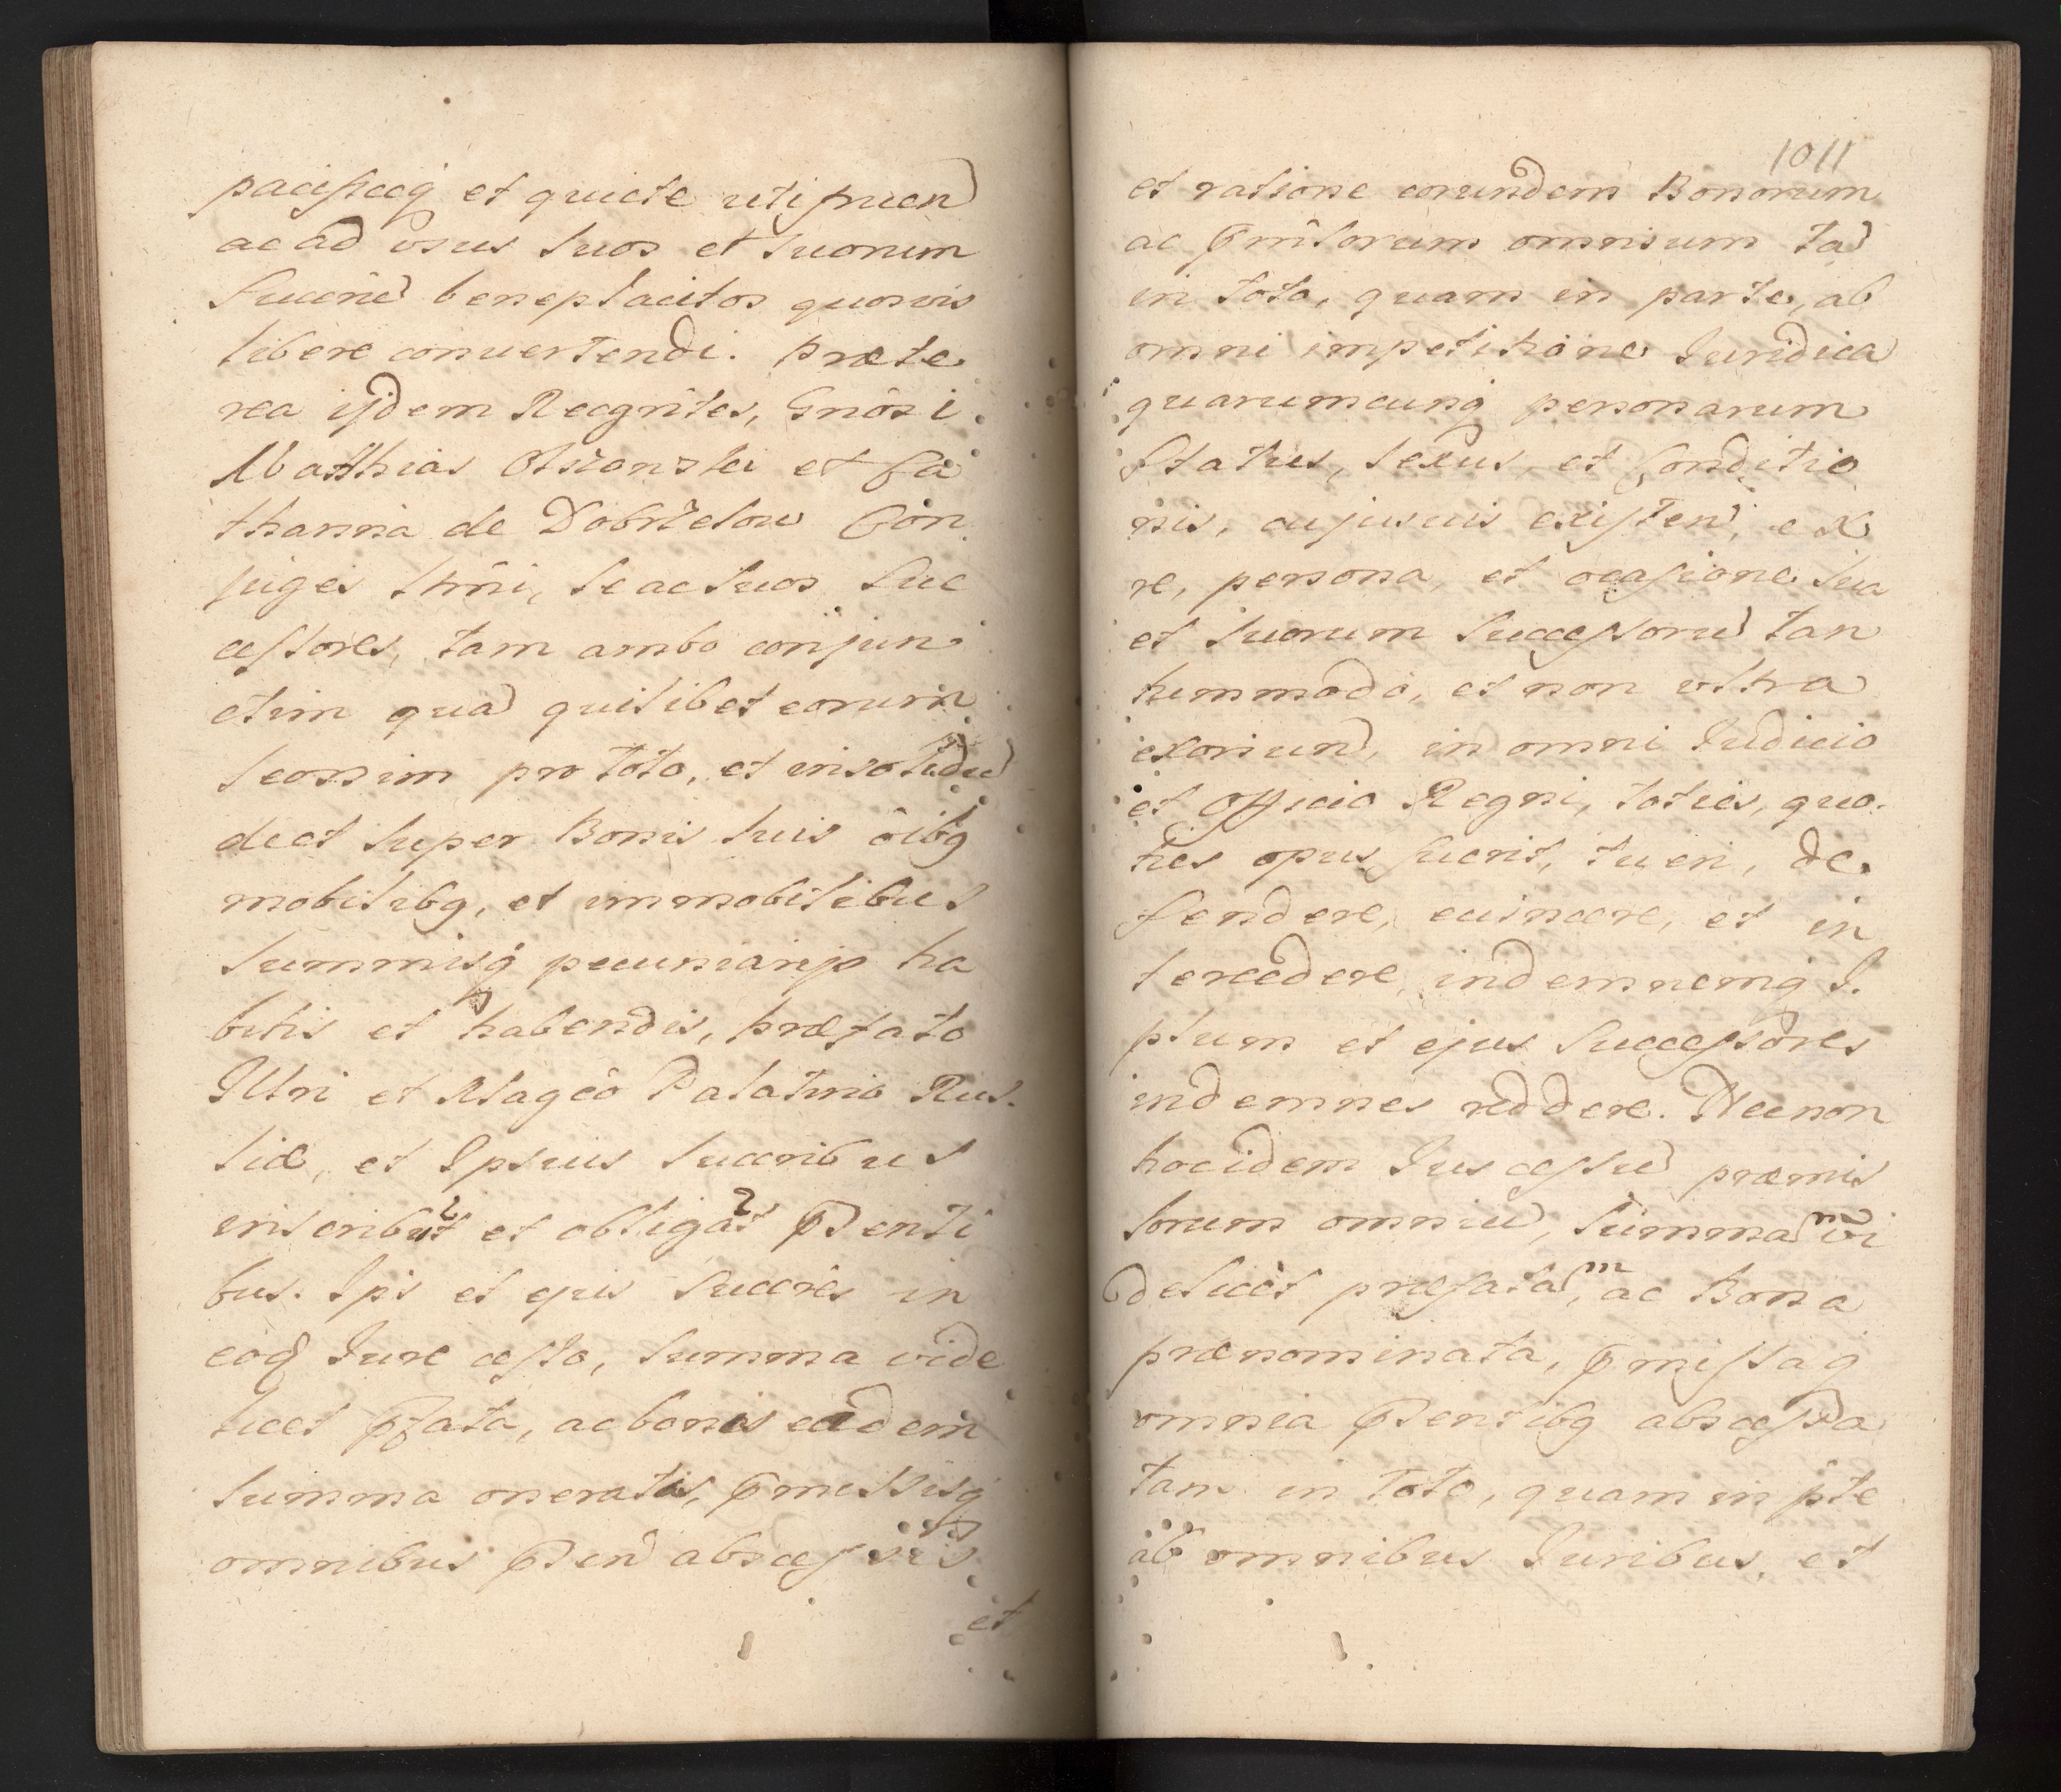 pacificeq et quiete uti fruen
ac ad usus suos et suorum
Succrũ beneplacitos quosvis
libere convertendi. Præte
rea ijdem Recgntes, Gnosi
Matthias et Ca
tharina de Con
juges se ac suos Suc
cessores, tam ambo conjun
ctim quã quilibet eorum
seorsim pro toto, et insolidũ
de et super Bonis suis oibq
mobilibq, et immobilibus
Summisq pecuniarijs ha
bitis et habendis, præfato
Illri et Magco Palatino Rus
siæ, et Ipsius Succribus
inscribut et obligat Psenti
bus. Ipi et ejus Succres in
eoq Jure cesso, Summa vide
licet pfata, ac bonis eadem
Summa oneratis, pmissisq
omnibus Psen abscessis
et
1011
et ratione eorundem Bonorum
ac pmissorum omnium tã
in toto, quam in parte, ab
omni impetitione Juridica
quarumcunq personarum
Status, sexus, et Conditio
nis, cujusvis existen, ex
re, persona, et ocasione sua
et suorum Successorũ tan
tummodo, et non ultra
exoriund, in omni Judicio
et Officio Regni, toties, quo
ties opus fuerit, tueri, de
fendere, evincere, et in
tercedere, indemnemq I.
psum et ejus Successores
indemnes reddere. Necnon
hocidem Jus cessũ præmis
sorum omniũ, Summam vi
delicet præfatam, ac Bona
prænominata, pmissaq
omnia Psentibq abscessa
tam in toto, quam in pte
ab omnibus Juribus, et